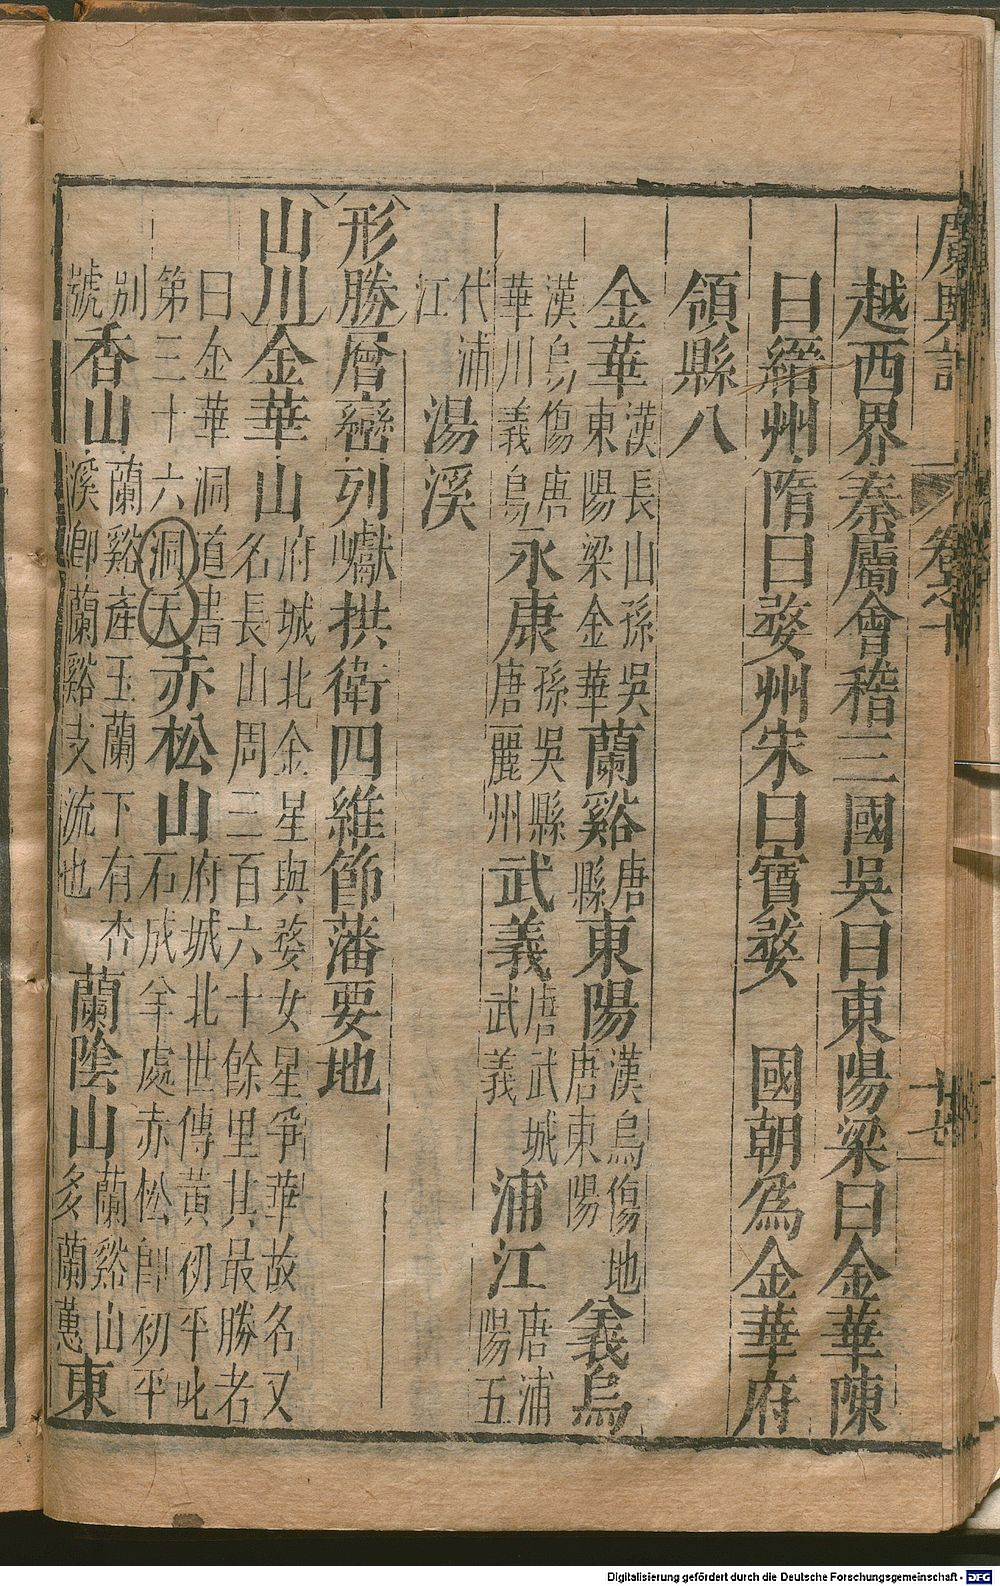 廣輿記 卷之十 十七
越西界秦屬會稽三國吳曰東陽梁曰金華陳
曰縉州隋曰婺州宋曰寶婺 國朝爲金華府
領縣八
金華 漢長山孫吳
東陽梁金華 蘭谿 唐
縣 東陽 漢烏傷地
唐東陽 義烏
漢烏傷唐
華川義烏 永康 孫吳縣
唐麗州 武義 唐武城
武義 浦江 唐浦
陽五
代浦
江 湯溪
形勝 層巒列巘拱衛四維節藩要地
山川 金華山 府城北金星與婺女星爭華故名又
名長山周三百六十餘里其最勝者
曰金華洞道書
第三十六洞天 赤松山 府城北世傳黃初平叱
石成羊處赤松卽初平
別
號 香山 蘭谿產玉蘭下有杏
溪卽蘭谿支流也 蘭陰山 蘭谿山
多蘭蕙 東
Digitalisierung gefördert durch die Deutsche Forschungsgemeinschaft - DFG